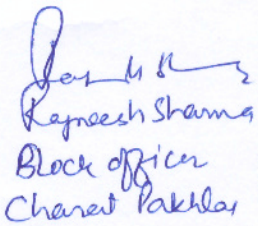 Rajneesh Sharma
Block officer
Charat Pakhlas